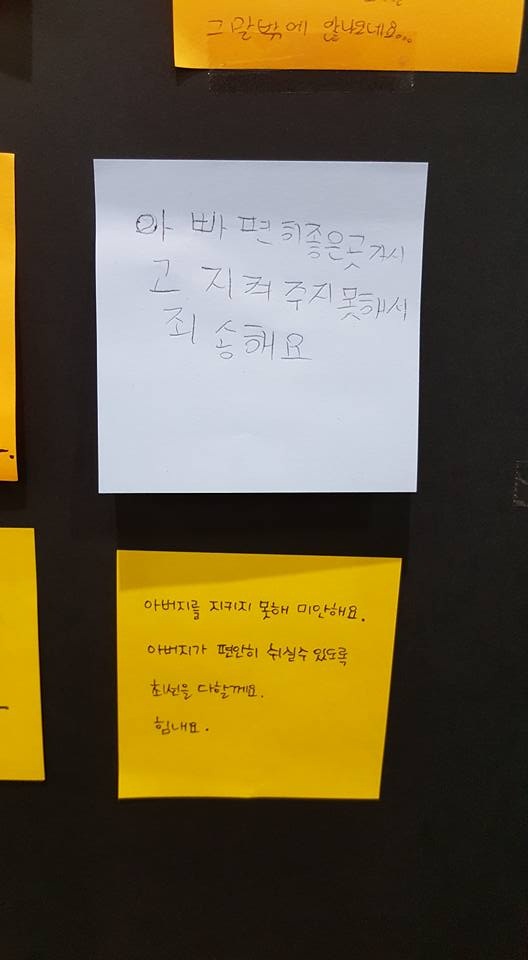 그말밖에 안나오네요...
아빠 편히좋은곳가시
고 지켜주지못해서
죄송해요
아버지를 지키지 못해 미안해요.
아버지가 편안히 쉬실수 있도록
최선을 다할께요.
힘내요.